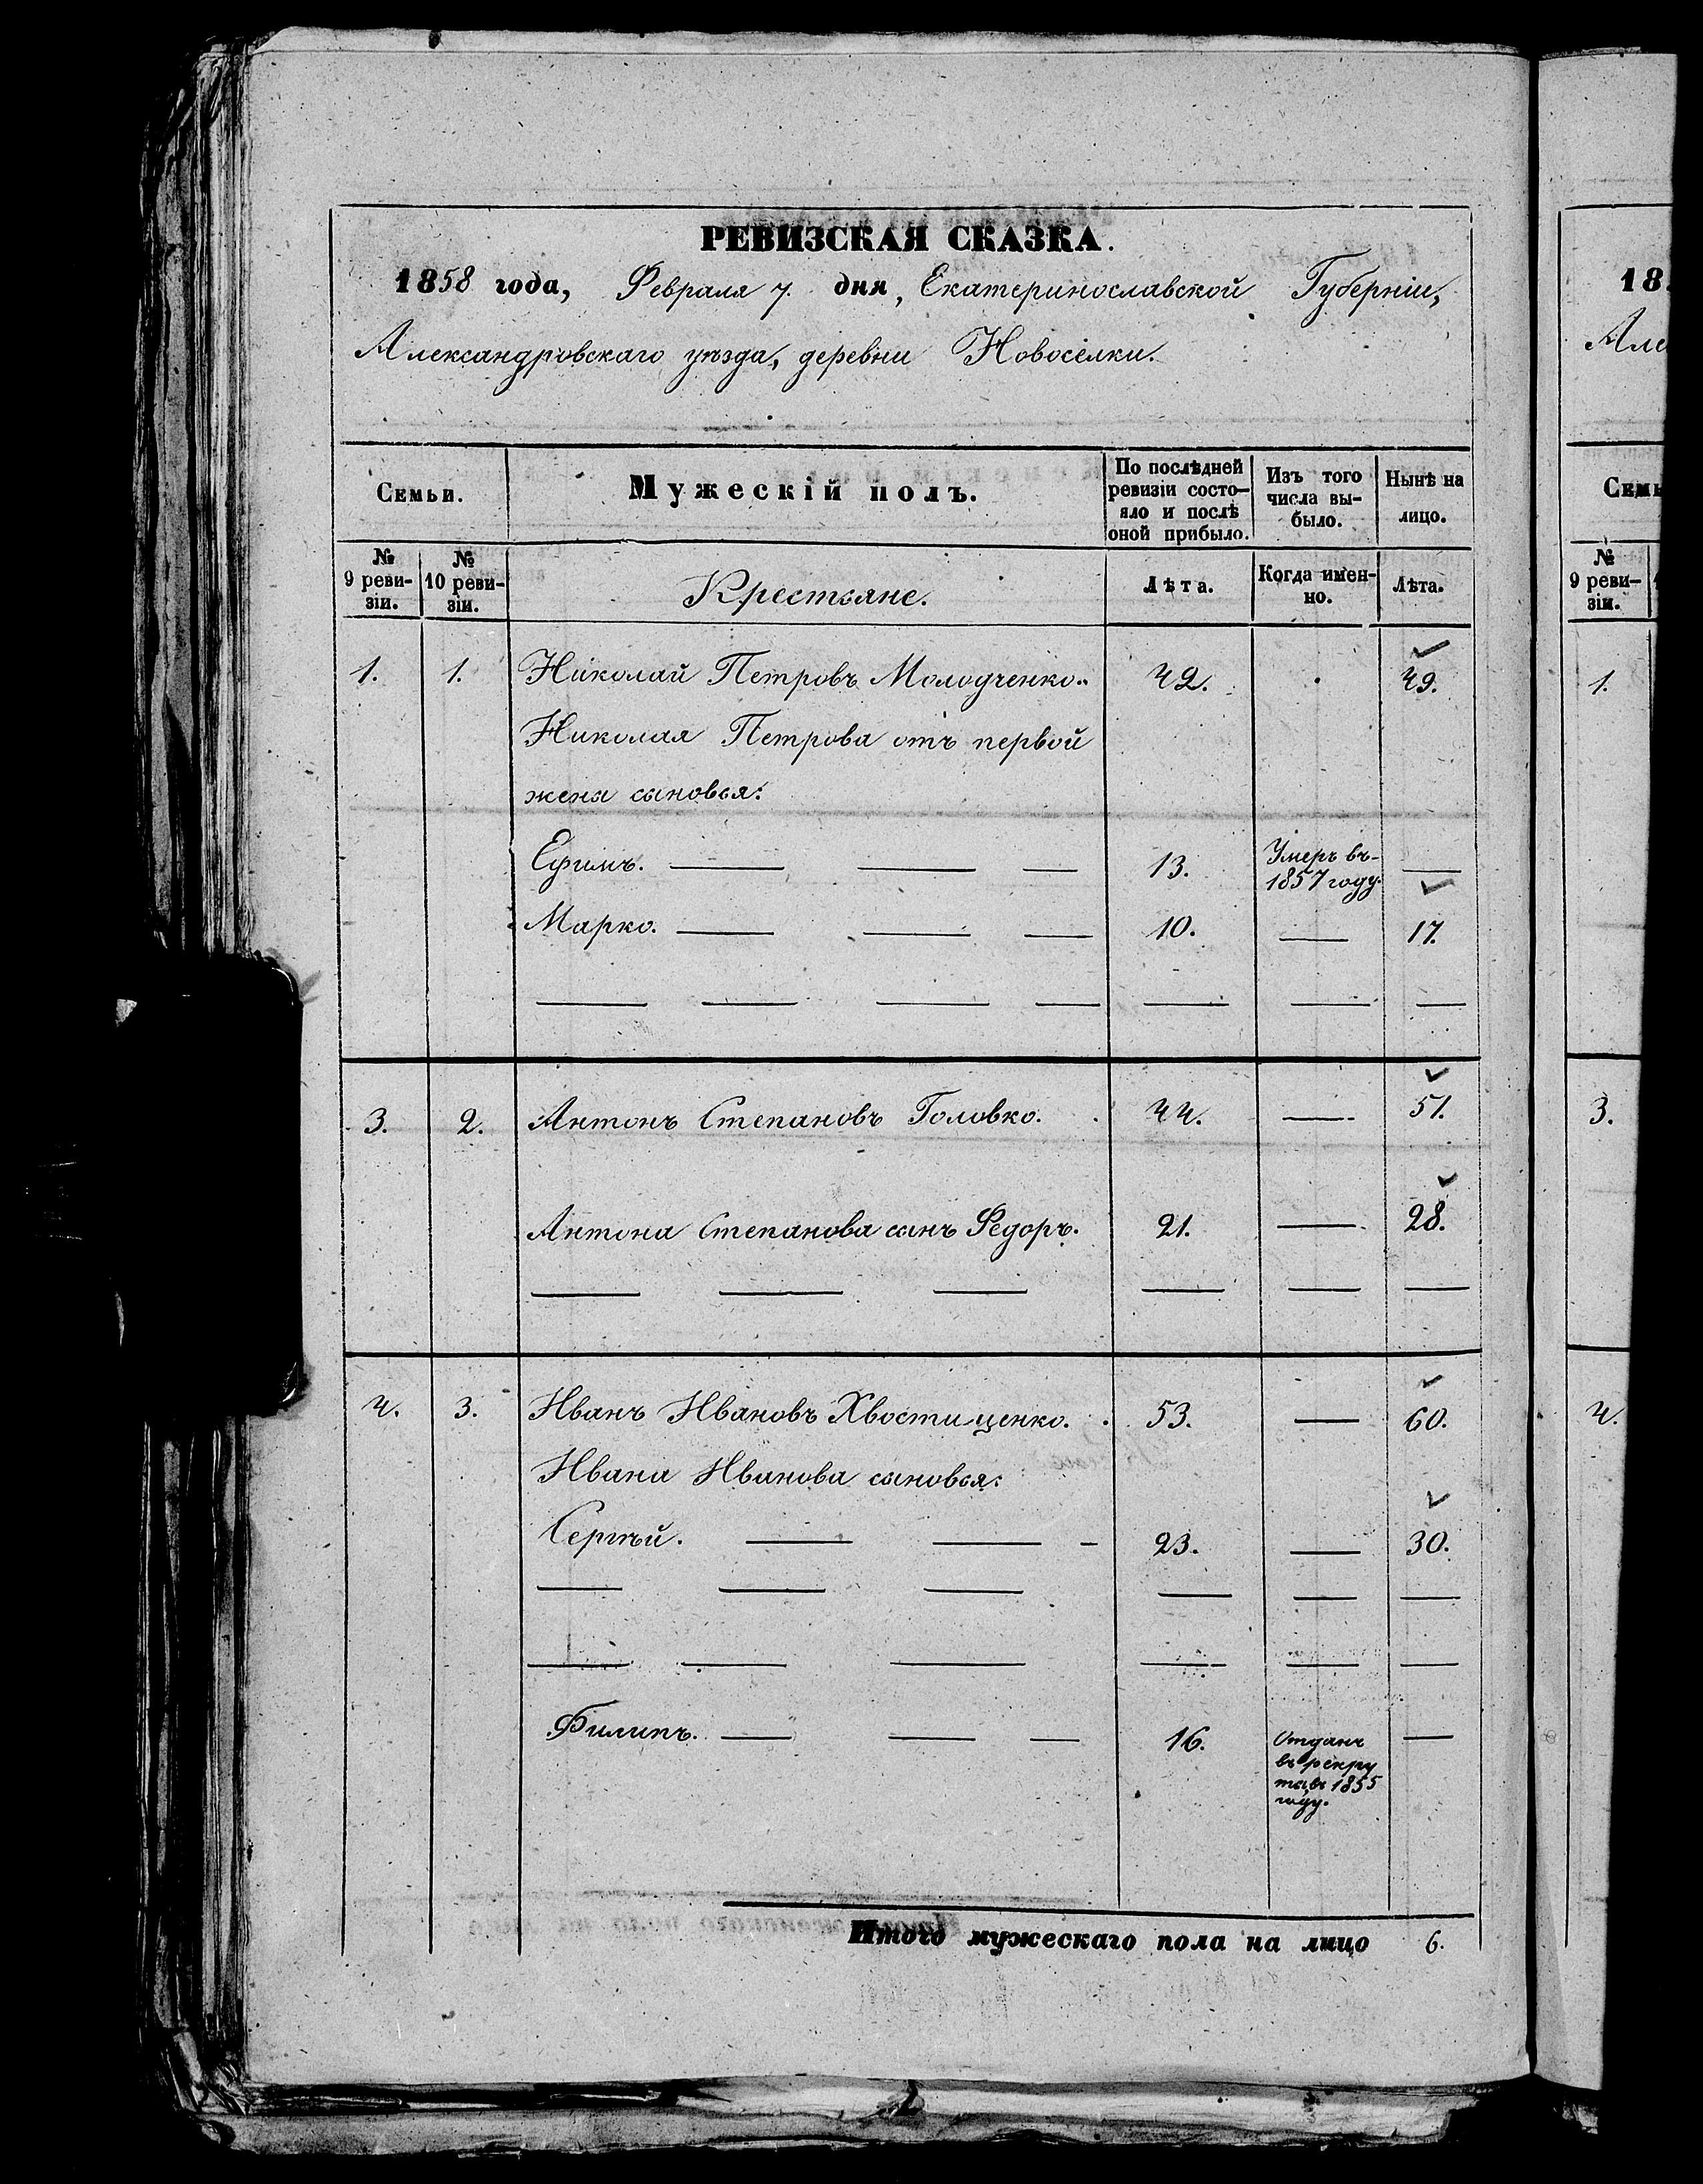 РЕВИЗСКАЯ СКАЗКА.
1858 года, Февраля 7. дня, Екатеринославской Губерніи,
Александровскаго уѣзда, деревни Новоселки.
Семьи.
Мужескій полъ.
По послѣдней ревизіи состо-
яло и послѣ оной прибыло.
Изъ того числа вы-
было.
Нынѣ на лицо.
№ 9 реви-
зіи.
№ 10 реви-
зіи.
Крестьяне.
Лѣта.
Когда имен-
но.
Лѣта.
1. 1. Николай Петровъ Молодченко. 42. 49.
Николая Петрова отъ первой
жены сыновья:
Ефимъ. — — — 13. Умеръ въ 1857 году. —
Марко. — — — 10. — 17.
— — — — — — —
3. 2. Антонъ Степановъ Головко. 44. — 51.
Антона Степанова сынъ Федоръ. 21. — 28.
— — — — — —
4. 3. Иванъ Ивановъ Хвостиценко. 53. — 60.
Ивана Иванова сыновья:
Сергѣй. — — - 23. — 30.
— — — — — —
— — — — — —
Филипъ. — — — 16. Отданъ въ рекруты въ 1855 году. —
Итого мужескаго пола на лицо 6.
18
Але
Семь
№
9 реви-
зіи.
1.
3.
4.